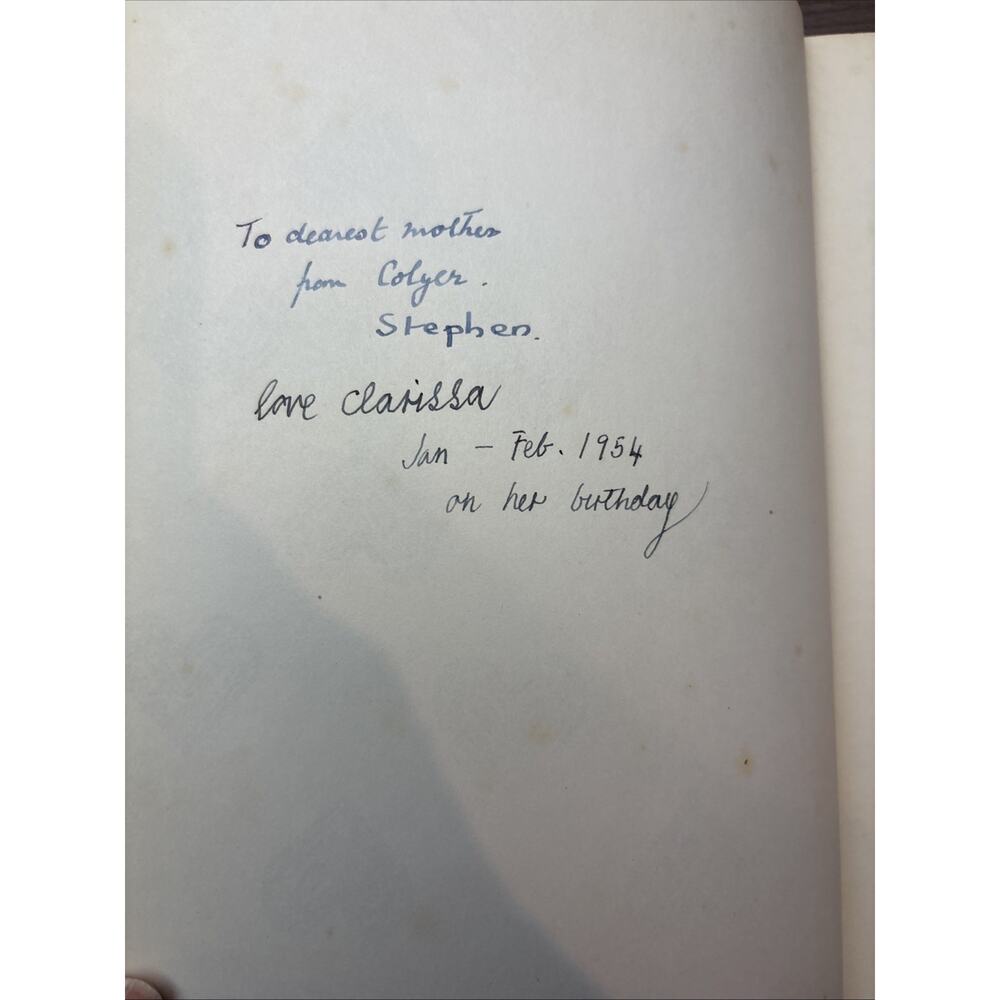 To dearest mother
from Colyer.
Stephen.
love Clarissa
Jan - Feb. 1954
on her birthday